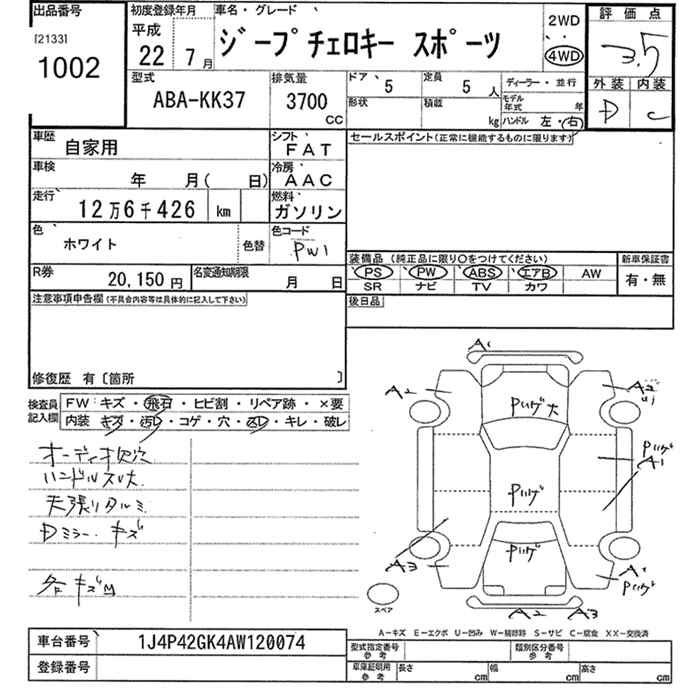 出品番号 初度登録年月 車名・グレード 2WD 評価点
[2133] 平成
1002 22 7月 ジープチェロキー スポーツ 4WD 3.5
型式 排気量 ドア 5 定員 5人 ディーラー・並行 外装 内装
ABA-KK37 3700 cc 形状 積載 kg モデル年式 年 D C
ハンドル 左・(右)
車歴 自家用 シフト FAT セールスポイント(正常に機能するものに限ります)
車検 年 月( 日) 冷房 AAC
走行 12万6千426 km 燃料 ガソリン
色 ホワイト 色替 色コード PW1
装備品 (純正品に限り○をつけてください) 新車保証書
R券 20,150円 名変通知期限 月 日 PS PW ABS エアB AW 有・無
SR ナビ TV カワ
注意事項申告欄(不具合内容等は具体的に記入して下さい) 後日品
修復歴 有〔箇所 〕
検査員記入欄 FW:キズ・飛石・ヒビ割・リペア跡・×要
内装 キズ・汚レ・コゲ・穴・凹レ・キレ・破レ
オーディオ欠穴
ハンドルスレ大
天張りタルミ
Dミラーキズ
各キズM
A1
A2 A2
U1
Pハゲ大
Pハゲ
A1
Pハゲ
Pハゲ
A3 A1
Pハゲ
スペア
A2 A3
A-キズ E-エクボ U-凹み W-補修跡 S-サビ C-腐食 XX-交換済
車台番号 1J4P42GK4AW120074 型式指定番号 参考 類別区分番号 参考
登録番号 車庫証明用 参考 長さ cm 幅 cm 高さ cm